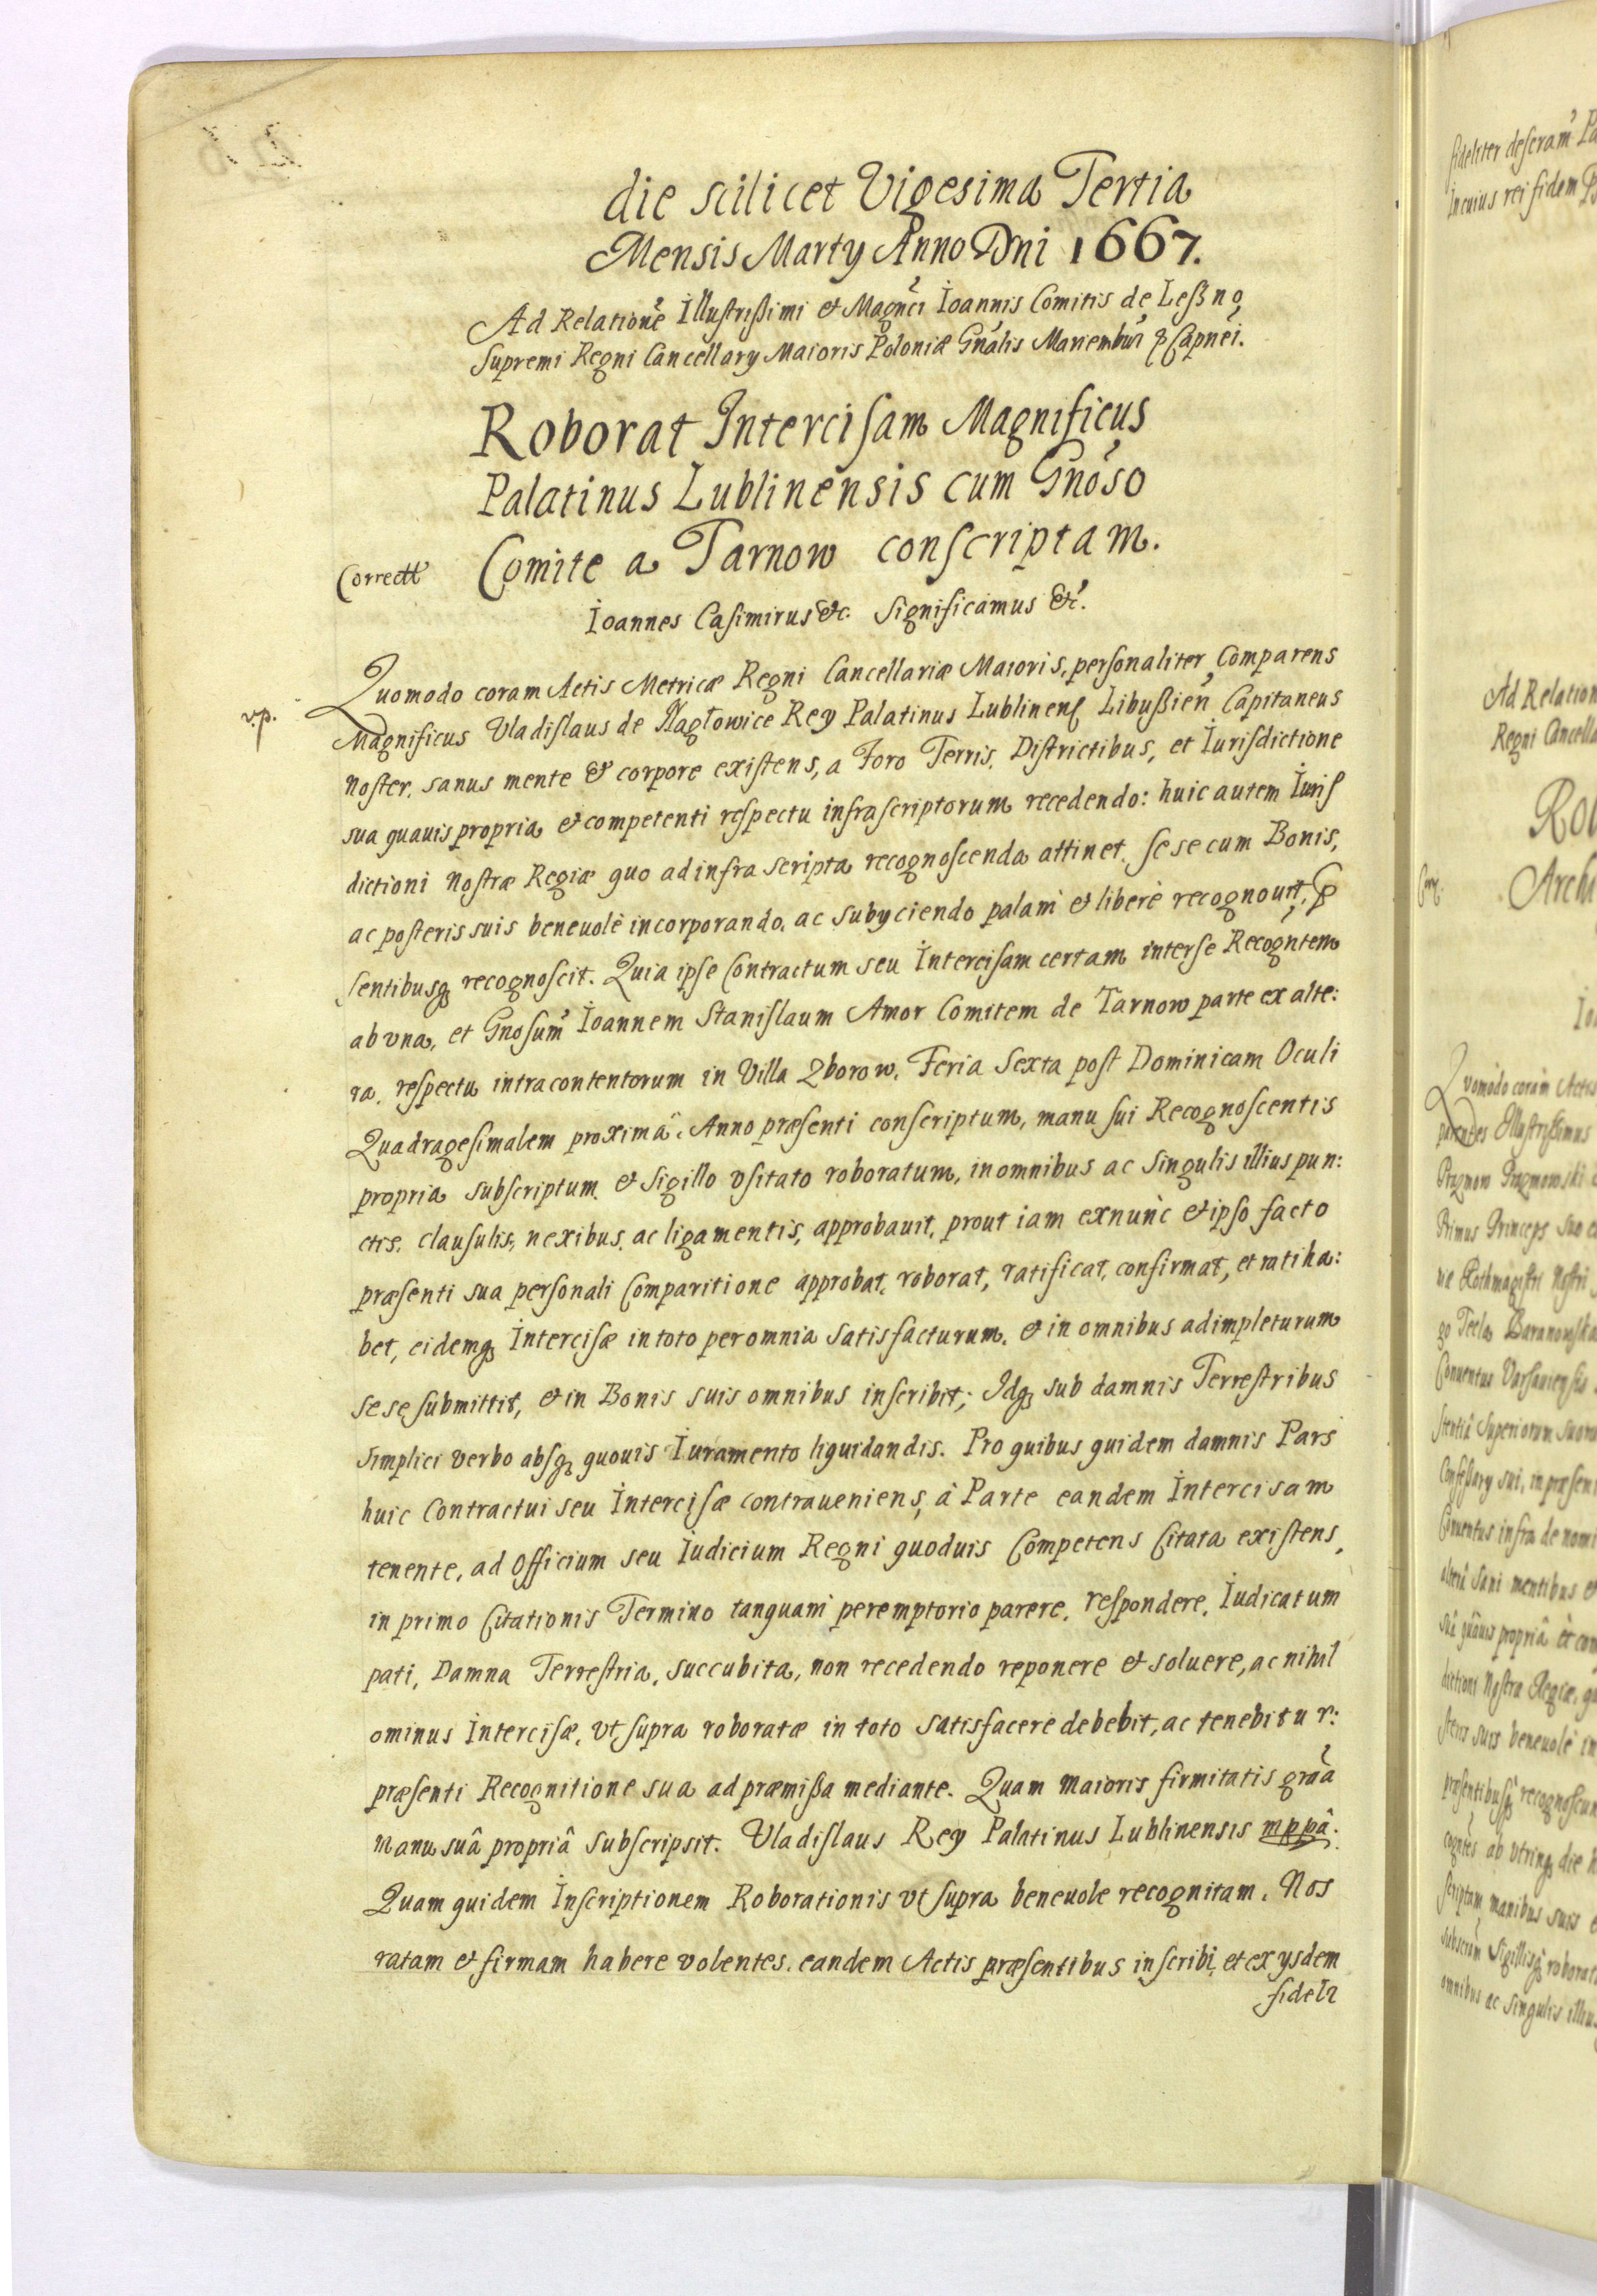 die scilicet Vigesima Tertia
Mensis Marty Anno Dni 1667.
Ad Relationē Illustrißimi et Magnci Ioannis Comitis de Leßno
Supremi Regni Cancellary Maioris Poloniæ Gnalis Mariembur Capnei.
Roborat Intercisam Magnificus
Palatinus Lublinensis cum Gnoso
Correctt Comite a Tarnow conscriptam.
Ioannes Casimirus &c. Significamus &c.
Quomodo coram Actis Metricæ Regni Cancellariæ Maioris, personaliter Comparens
vp. Magnificus Vladislaus de Nagłowice Rey Palatinus Lublinens Libußien Capitaneus
noster, sanus mente et corpore existens, a Foro Terris, Districtibus, et Iurisdictione
sua quauis propria et competenti respectu infrascriptorum recedendo: huic autem Iuris
dictioni nostræ Regiæ quo ad infra scripta recognoscenda attinet sese cum Bonis,
ac posteris suis beneuolè incorporando, ac subyciendo palam et liberè recognouit, P
sentibusq recognoscit. Quia ipse Contractum seu Intercisam certam interse Recogntem
ab vna, et Gnosum Ioannem Stanislaum Amor Comitem de Tarnow parte ex alte:
ra, respectu intracontentorum in Villa Zborow, Feria Sexta post Dominicam Oculi
Quadragesimalem proximâ, Anno præsenti conscriptum, manu sui Recognoscentis
propria subscriptum et Sigillo vsitato roboratum, in omnibus ac Singulis illius pun:
ctis, clausulis, nexibus, ac ligamentis, approbauit, prout iam exnunc et ipso facto
præsenti sua personali Comparitione approbat, roborat, ratificat, confirmat, et ratiha:
bet, eidemq Intercisæ in toto per omnia satisfacturum, et in omnibus adimpleturum
sese submittit, et in Bonis suis omnibus inscribit; Idq sub damnis Terrestribus
simplici verbo absq quouis Iuramento liquidandis. Pro quibus quidem damnis Pars
huic Contractui seu Intercisæ contraueniens, à Parte eandem Intercisam
tenente, ad Officium seu Iudicium Regni quoduis Competens Citata existens,
in primo Citationis Termino tanquam peremptorio parere, respondere, Iudicatum
pati, Damna Terrestria, succubita, non recedendo reponere et soluere, ac nihil
ominus Intercisæ, vt supra roboratæ in toto satisfacere debebit, ac tenebitur:
præsenti Recognitione sua ad præmißa mediante. Quam maioris firmitatis graa
manu suâ propriâ subscripsit. Vladislaus Rey Palatinus Lublinensis mppâ.
Quam quidem Inscriptionem Roborationis vt supra beneuole recognitam, Nos
ratam et firmam habere volentes, eandem Actis præsentibus inscribi, et ex ysdem
fidelr
fideliter
In cuius rei fidem
Ad Relation
Regni Cancella
Quomodo coram Actis
Illustrißimus